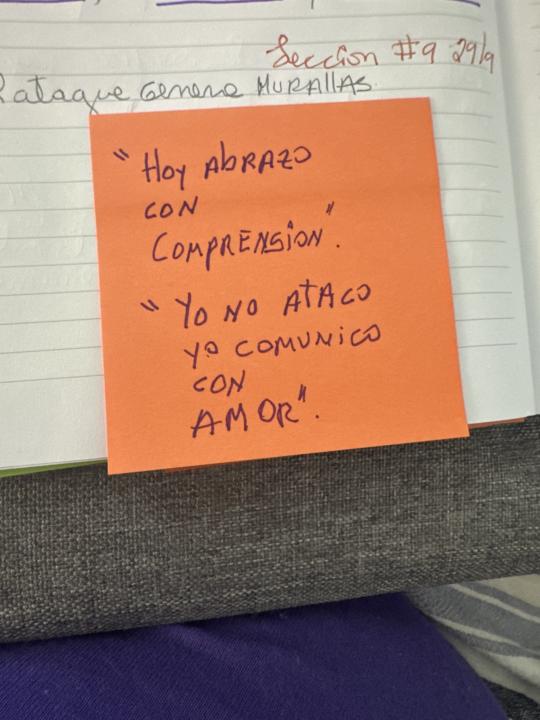 Seccion #9 29/9
ataque genera MURALLAS.
"Hoy ABRAZO
CON
COMPRENSION".
"YO NO ATACO
YO COMUNICO
CON
AMOR".